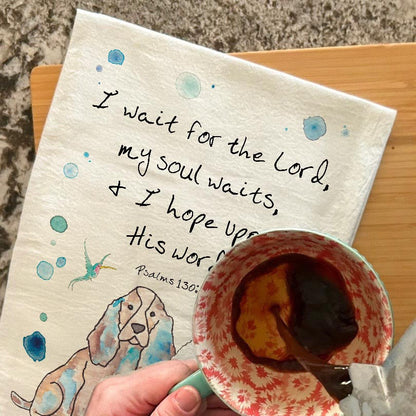 I wait for the Lord,
my soul waits,
& I hope
His
Psalms 130: